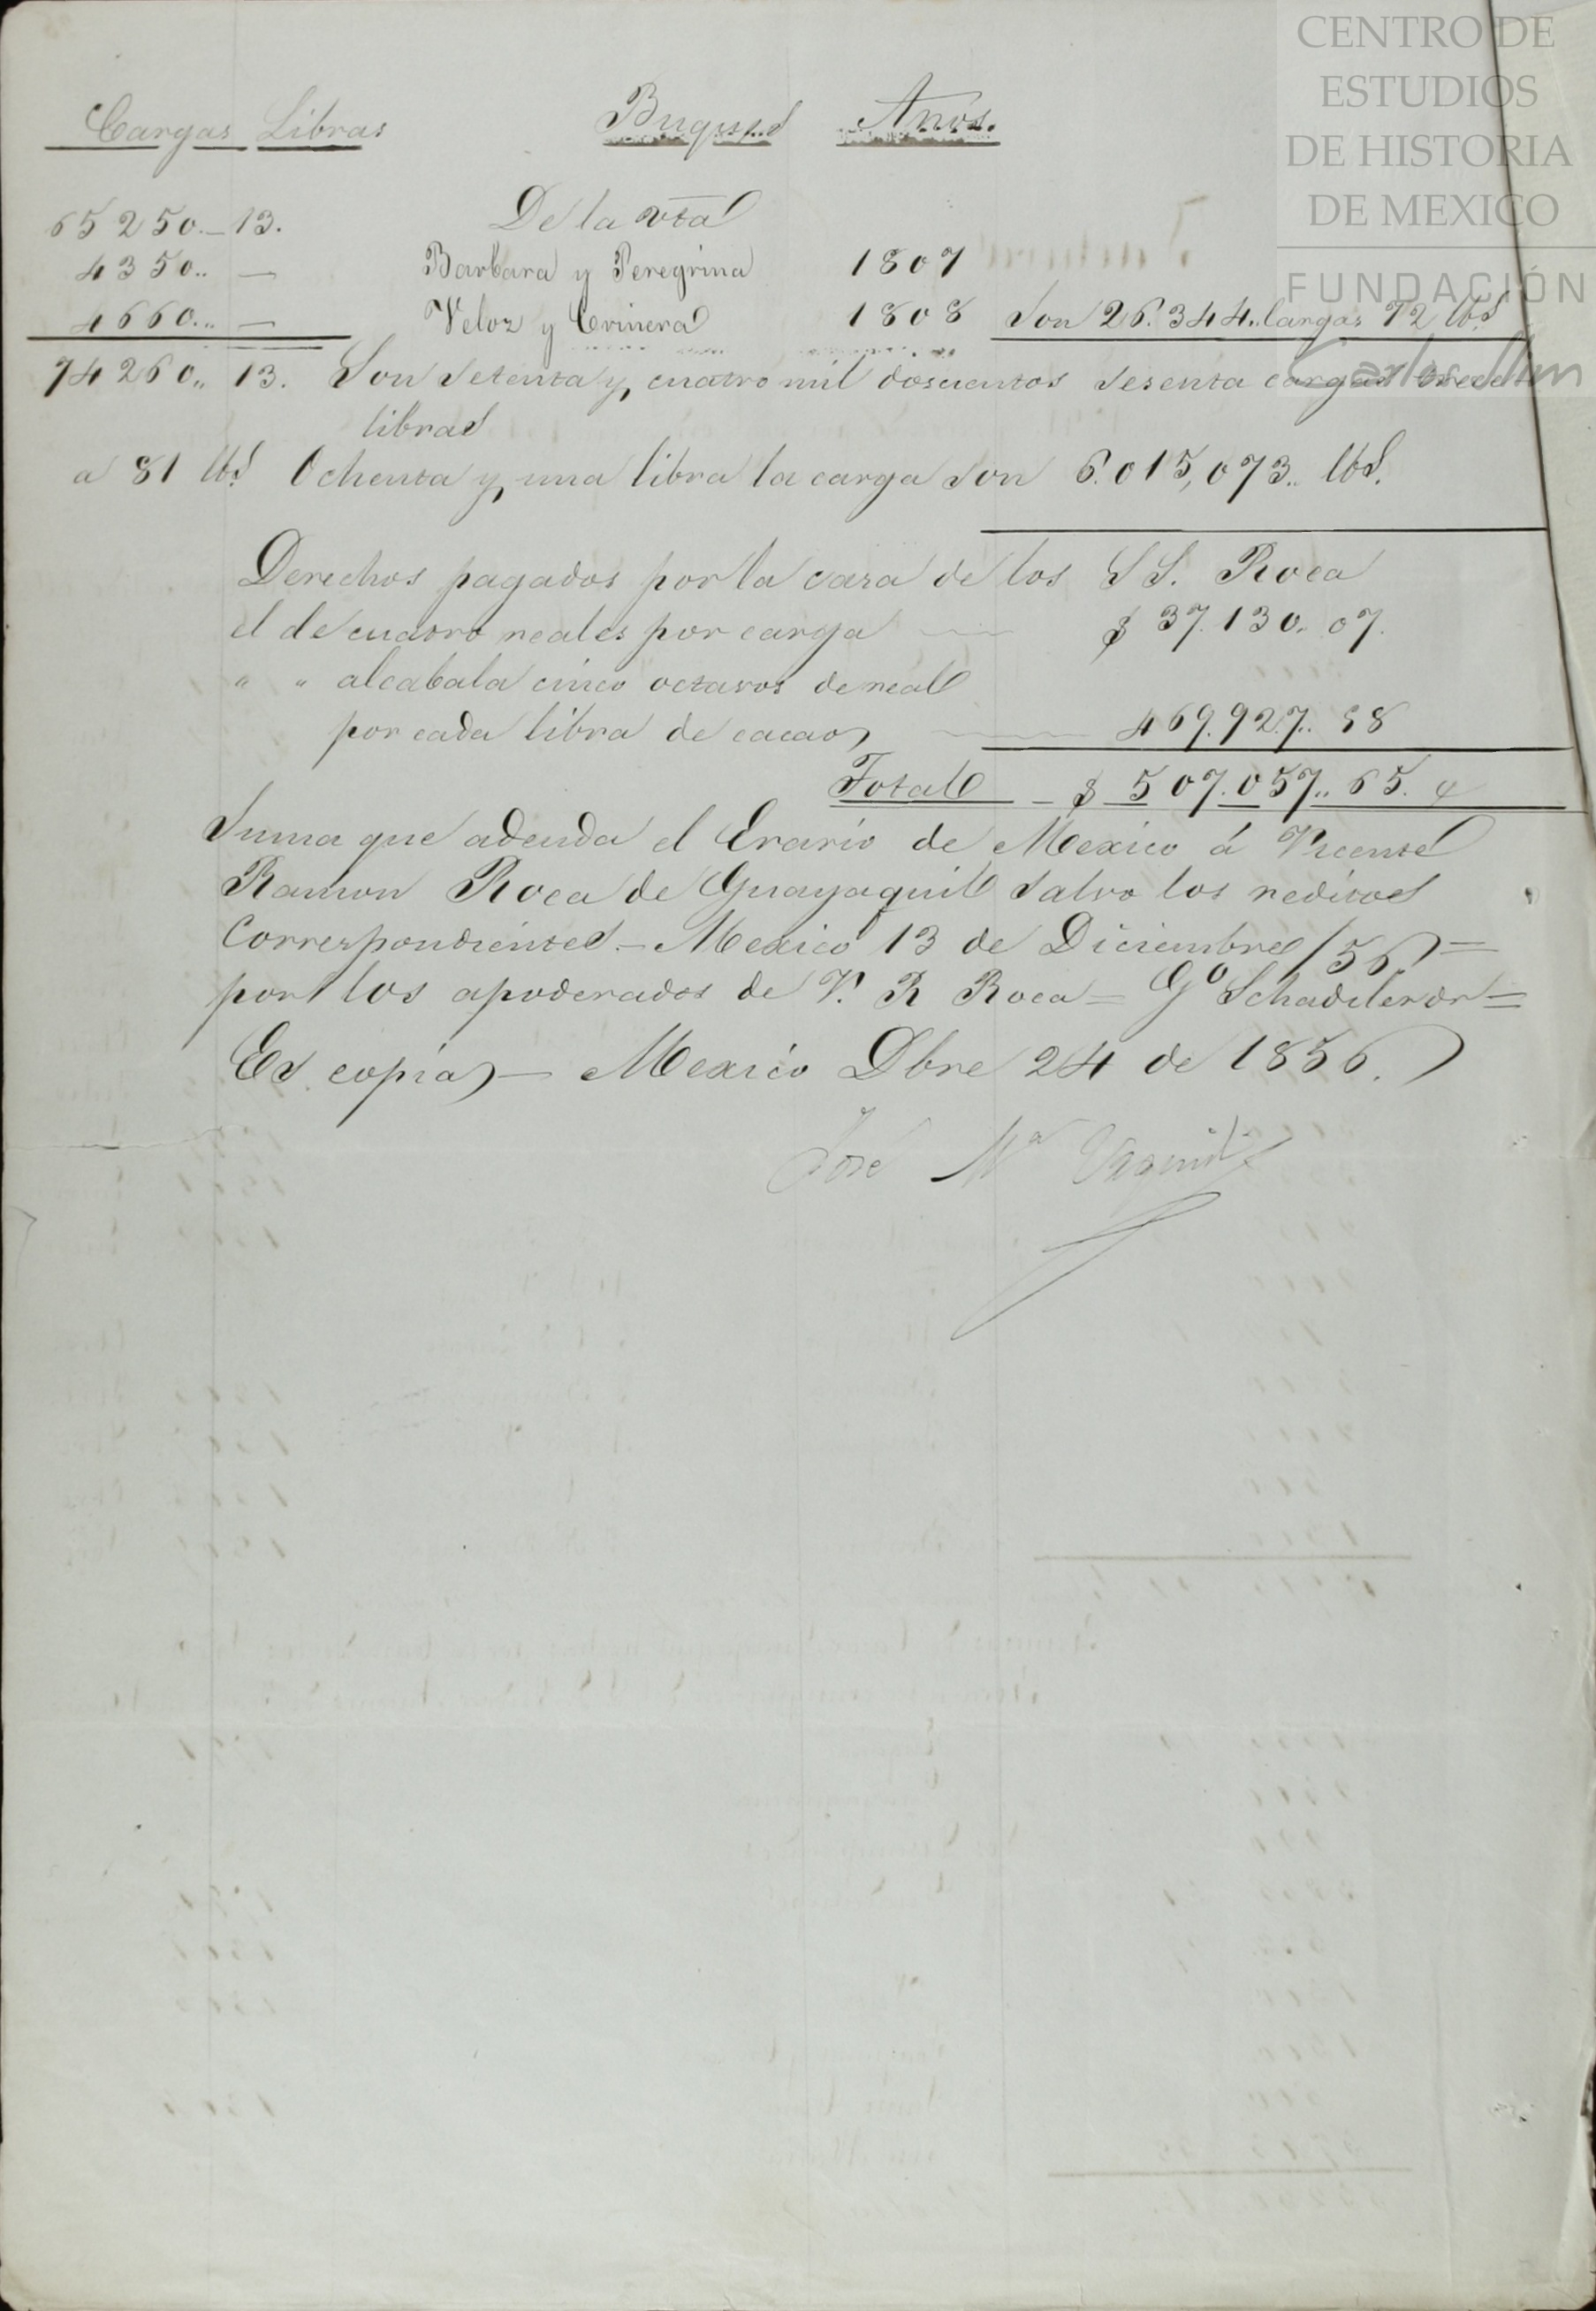 CENTRO DE
ESTUDIOS
DE HISTORIA
DE MEXICO
FUNDACIÓN
Carlos Slim
Cargas Libras Buques Años.
65250.. 13. De la vta
4350.. — Barbara y Peregrina 1807
4660... — Veloz y Crinera 1808 Son 26.344.. Cargas 72 lbs
74260.. 13. Son setenta y cuatro mil doscientos sesenta cargas trece
libras
a 81 lbs Ochenta y una libra la carga son 6.015,073.. lbs.
Derechos pagados por la casa de los SS. Roca
el de cuatro reales por carga — $ 37.130. 07.
" " alcabala cinco octavos de real
por cada libra de cacao — 469.927.. 58
Total — $ 507.057.. 65.
Suma que adeuda el Erario de Mexico á Vicente
Ramon Roca de Guayaquil salvo los reditos
Correspondientes — Mexico 13 de Diciembre /56 —
por los apoderados de V. R Roca = Go =
Es copia — Mexico Dbre 24 de 1856.
José Ma